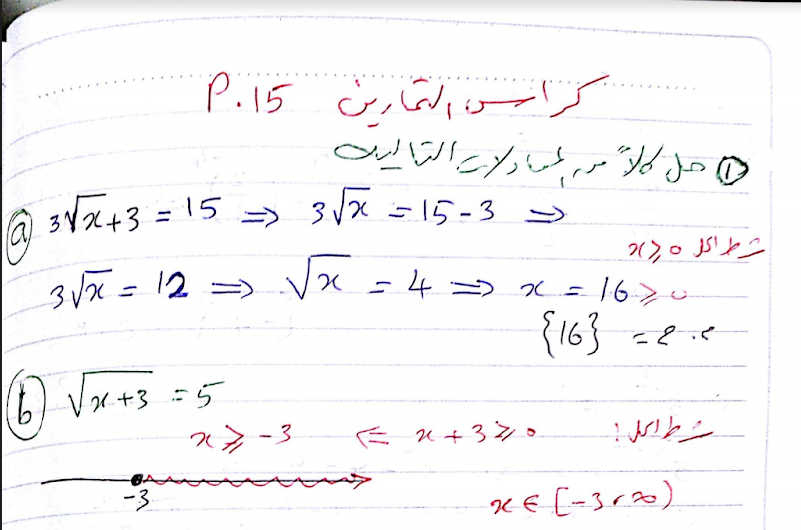 كراس التمارين P.15
① حل كلاً من المعادلات التالية
ⓐ 3√x + 3 = 15 ⇒ 3√x = 15 - 3 ⇒
شرط الحل x ≥ 0
3√x = 12 ⇒ √x = 4 ⇒ x = 16 ≥ 0
{16} = م.ح
ⓑ √(x+3) = 5
شرط الحل: x + 3 ≥ 0 ⇒ x ≥ -3
-3
x ∈ [-3, ∞)